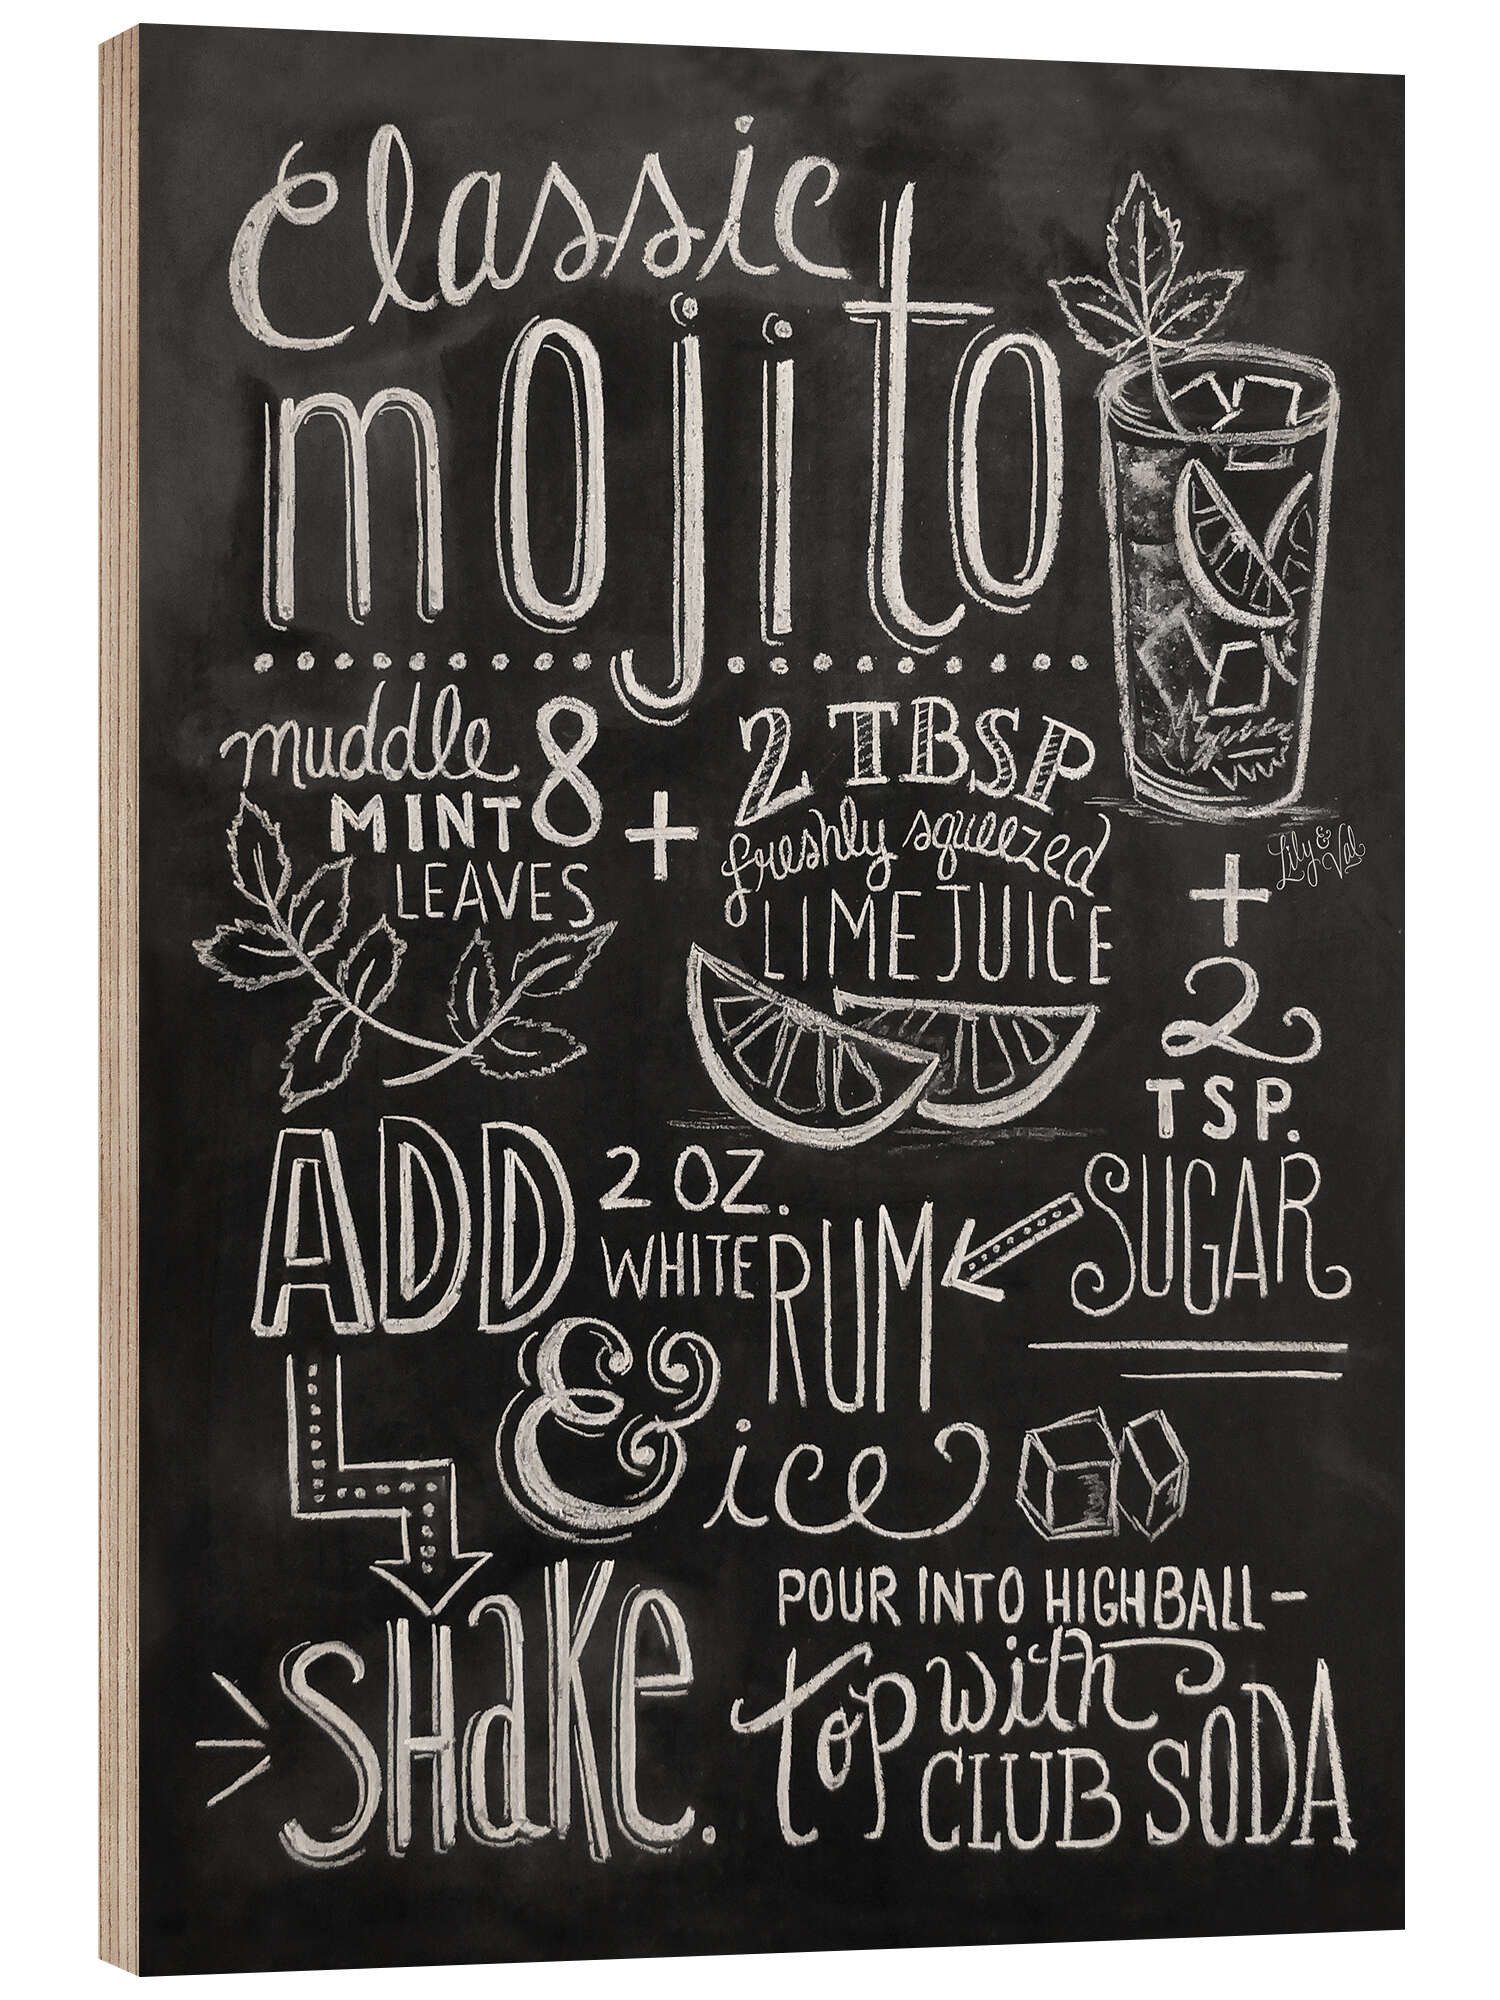 Classic
mojito
muddle 8
MINT
LEAVES
+
2 TBSP
freshly squeezed
LIME JUICE
Lily & Val
+
2
TSP.
SUGAR
ADD 2 OZ.
WHITE RUM
& ice
SHaKe.
POUR INTO HIGHBALL–
top with
CLUB SODA